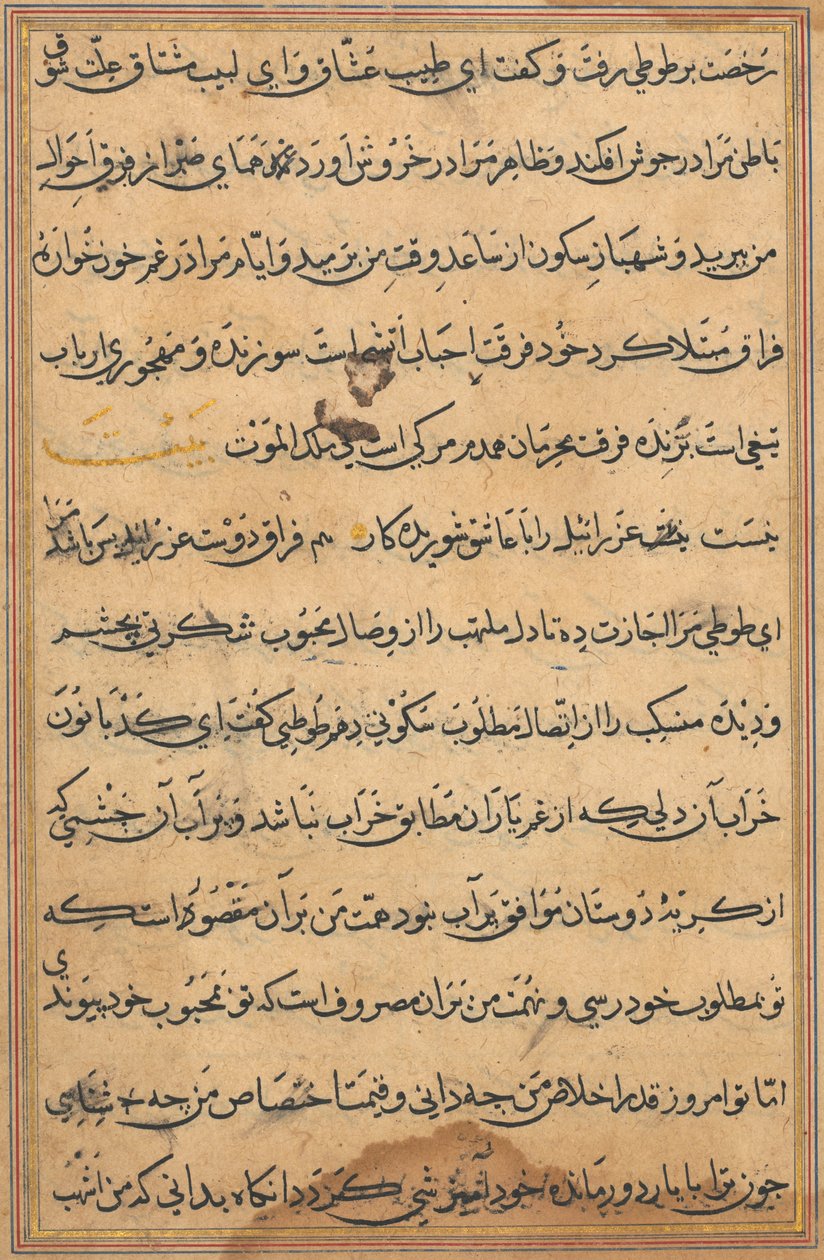 رخصت بر طوطي رفت و كفت اي طبيب عشّاق و اي لبيب مشتاق علّت شوق
باطن مرا در جوش افكند و ظاهر مرا در خروش آورد هماي صبر از فرق احوال
من ببريد و شهباز سكون از ساعد وقت من برميد و ايّام مرا در غم خون خواره
فراق مبتلا كرد خود فرقت احباب آتشي است سوزنده و مهجوري ارباب
تيغي است برنده فرقت محرمان همدم مركي است بي ملك الموت بيت
نيست عزرائيل را با عاشق شوريده كار هم فراق دوست عزرائيل بس باشد مرا
اي طوطي مرا اجازت ده تا دل ملتهب را از وصال محبوب شكرتي بچشم
و ديده منسكب را از اتّصال مطلوب سكوني دهم طوطي كفت اي كدبانون
خراب آن دلي كه از غم ياران مطابق خراب نباشد و پر آب آن چشمي كه
از كريهٔ دوستان موافق پر آب نبود همّت من بر آن مقصور است كه
تو بمطلوب خود رسي و نهمت من بر ان مصروف است كه تو بمحبوب خود پيوندي
امّا تو امروز قدر اخلاص من چه داني و قيمت اختصاص من چه شناسي
چون ترا با يار دور مانده خود آميزشي كردد انكاه بداني كه من اشهب